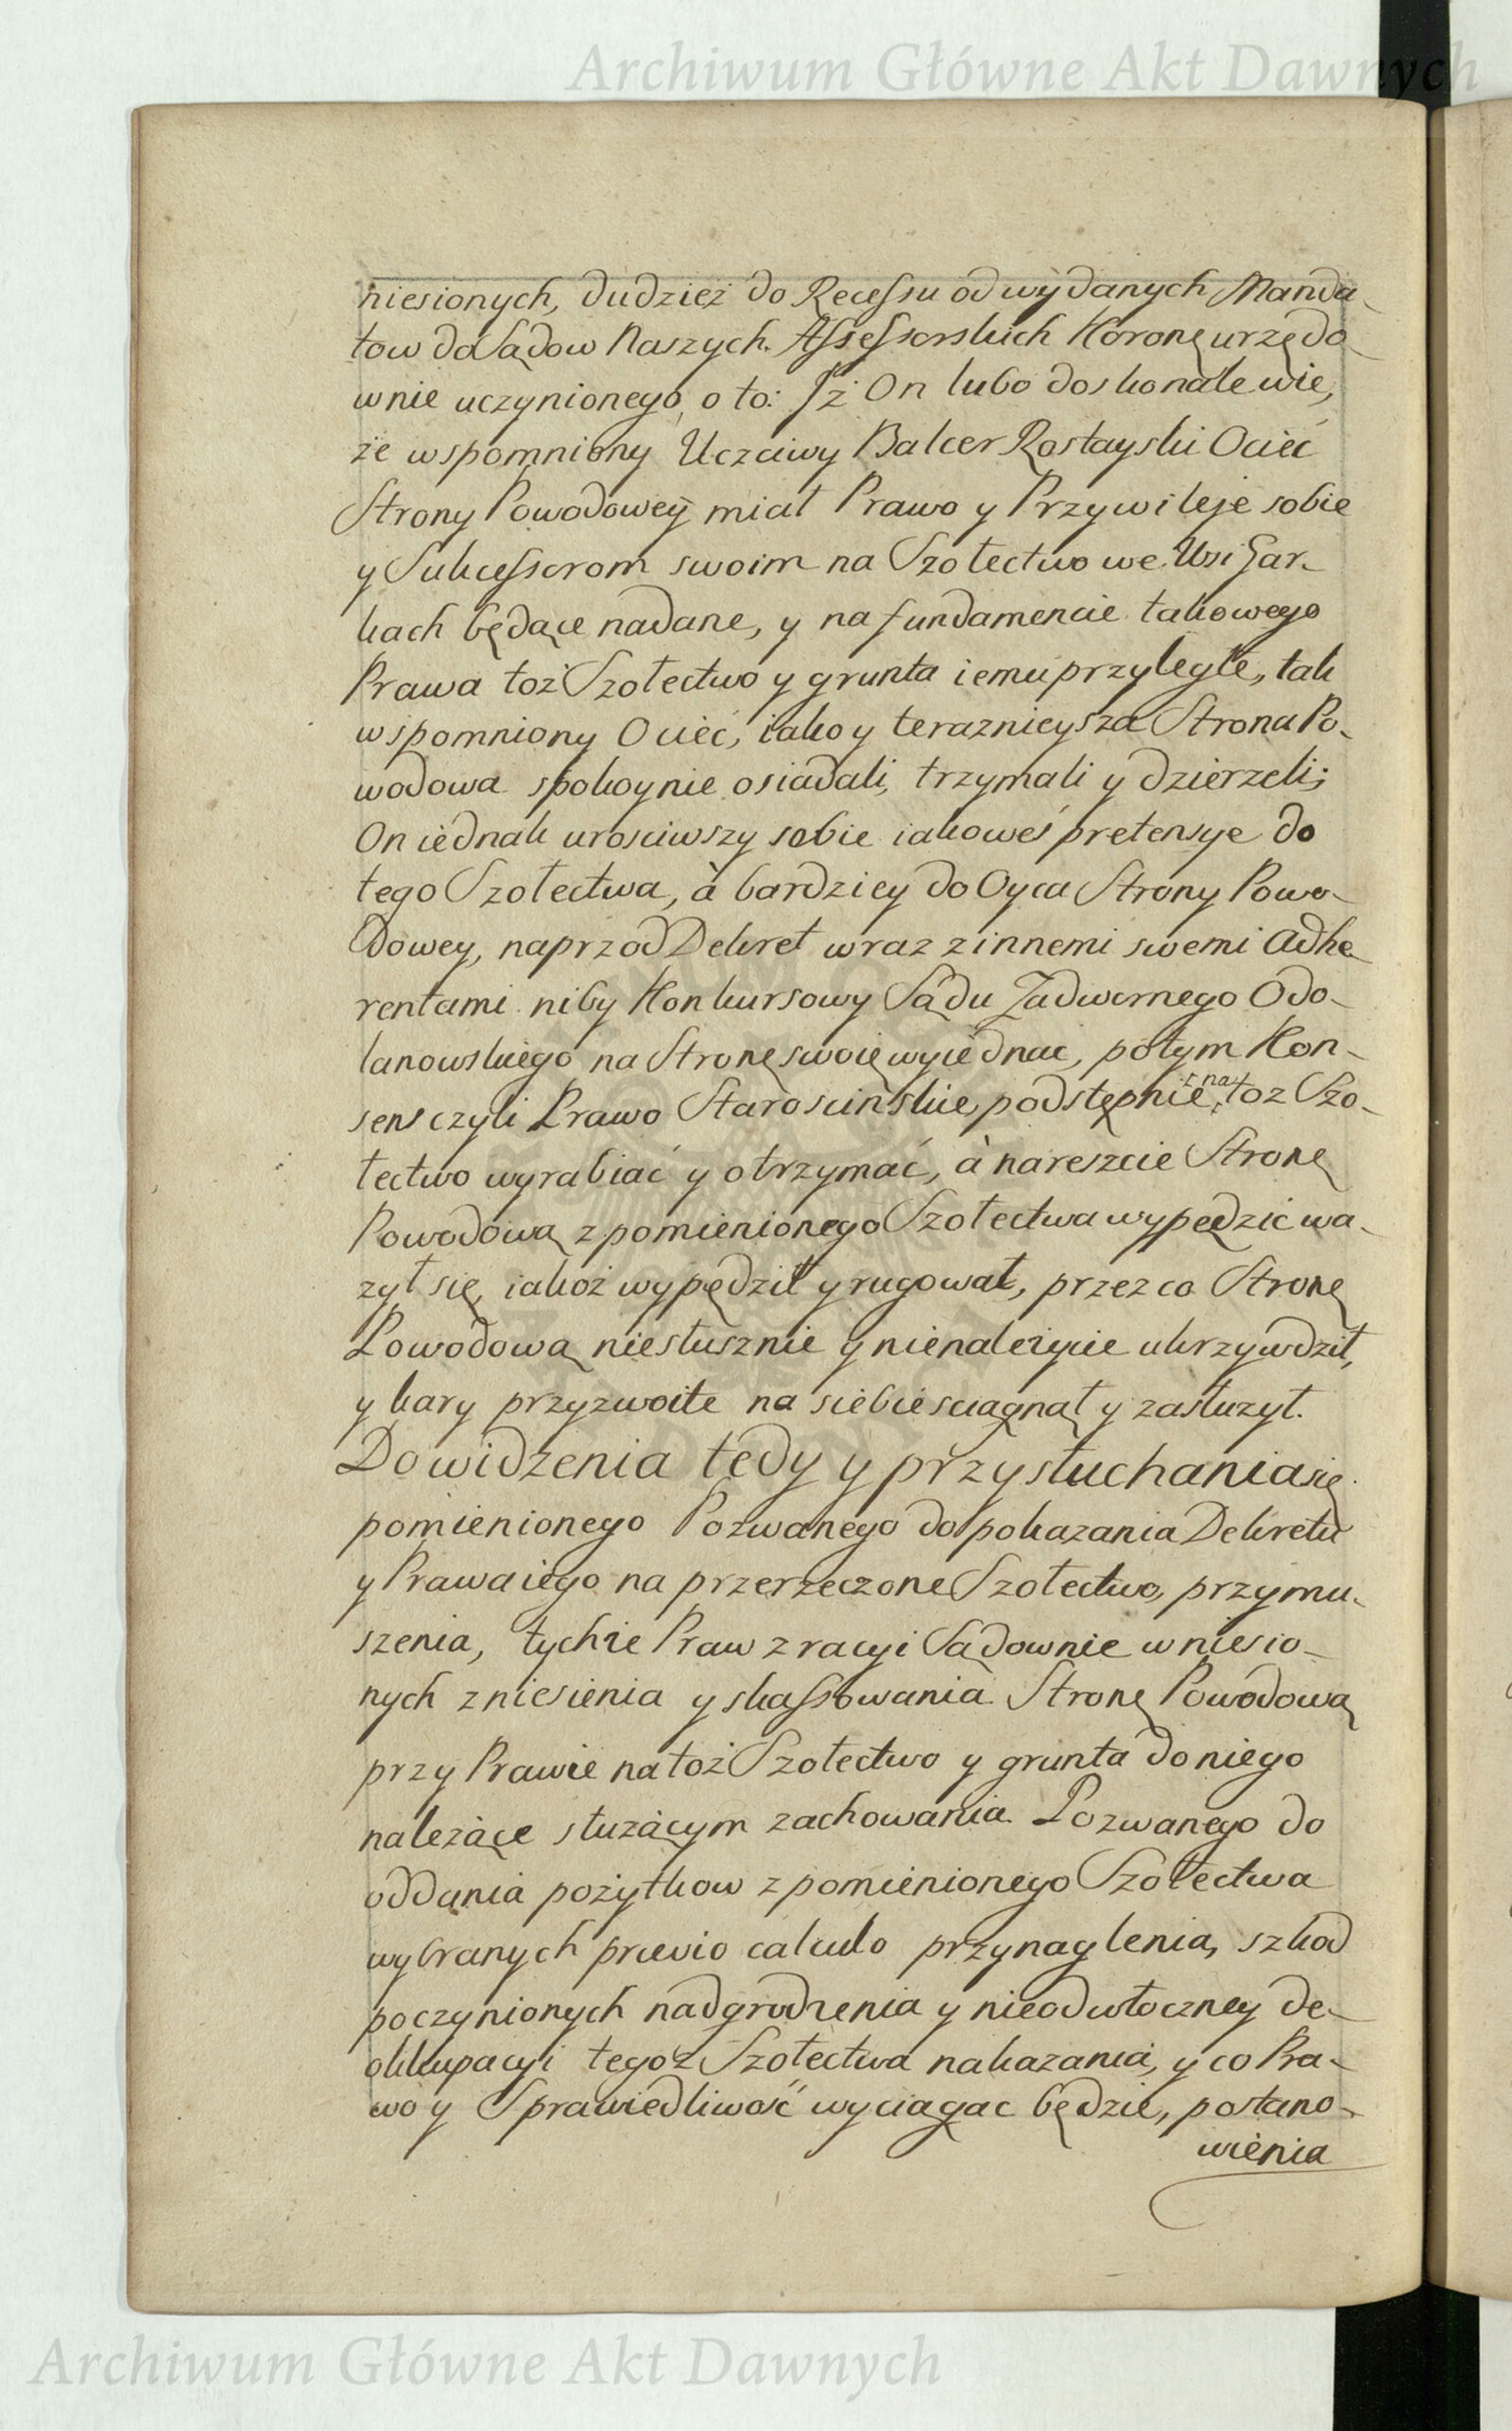 Archiwum Główne Akt Dawnych
niesionych, dudzież do Recessu od wydanych Manda-
tow do Sądow Naszych Assessorskich Koronę urzędo-
wnie uczynionego, o to: Jż On lubo doskonale wie,
że wspomniony Uczciwy Balcer Rostayski Ociec
Strony Powodowey miał Prawo y Przywileje sobie
y Sukcessorom swoim na Szołectwo we Wsi Gar-
kach będące nadane, y na fundamencie takowego
Prawa toż Szołectwo y grunta iemu przyległe, tak
wspomniony Ociec, iako y teraznieysza Strona Po-
wodowa spokoynie osiadali, trzymali y dzierzeli;
On iednak urosciwszy sobie iakoweś pretensye do
tego Szołectwa, à bardziey do Oyca Strony Powo-
dowey, naprzod Dekret wraz z innemi swemi Adhe-
rentami niby Konkursowy Sądu Zadwornego Odo-
lanowskiego na Stronę swoię wyiednac, potym Kon-
sens czyli Prawo Staroscinskie podstępnie na toz Szo-
łectwo wyrabiać y otrzymać, à nareszcie Stronę
Powodową z pomienionego Szołectwa wypędzic wa-
zył się, iakoż wypędził y rugował, przez co Stronę
Powodową niesłusznie y nienależycie ukrzywdził,
y kary przyzwoite na siebie sciągnął y zasłuzył.
Do widzenia tedy y przysłuchania się
pomienionego Pozwanego do pokazania Dekretu
y Prawa iego na przerzeczone Szołectwo, przymu-
szenia, tychże Praw z racyi Sądownie wniesio-
nych zniesienia y skassowania. Stronę Powodową
przy Prawie na toż Szołectwo y grunta do niego
należące służącym zachowania. Pozwanego do
oddania pożytkow z pomienionego Szołectwa
wybranych prævio calculo przynaglenia, szkod
poczynionych nadgrodzenia y nieodwłoczney de-
okkupacyi tegoz Szołectwa nakazania, y co Pra-
wo y Sprawiedliwość wyciągac będzie, postano-
wienia
Archiwum Główne Akt Dawnych